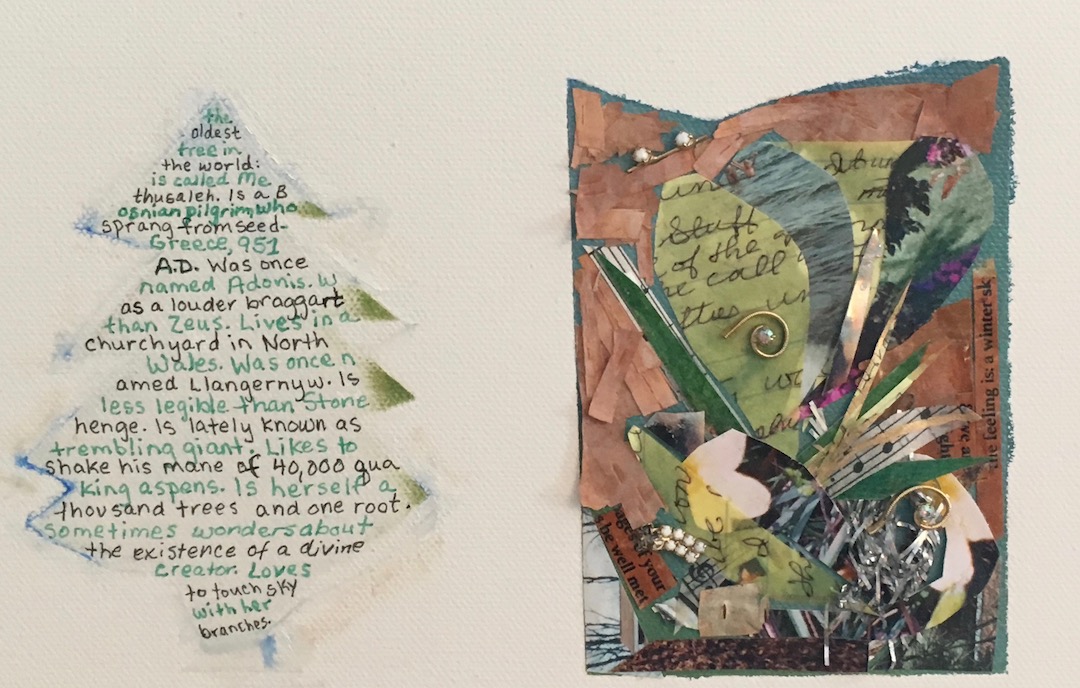 the
oldest
tree in
the world:
is called Me
thusaleh. Is a B
osnian pilgrim who
sprang from seed-
Greece, 951
A.D. Was once
named Adonis. W
as a louder braggart
than Zeus. Lives in a
churchyard in North
Wales. Was once n
amed Llangernyw. Is
less legible than Stone
henge. Is lately known as
trembling giant. Likes to
shake his mane of 40,000 qua
king aspens. Is herself a
thousand trees and one root.
sometimes wonders about
the existence of a divine
creator. Loves
to touch sky
with her
branches.
Stuff
of the
call
the feeling is: a winter sk
ages of your
s be well met